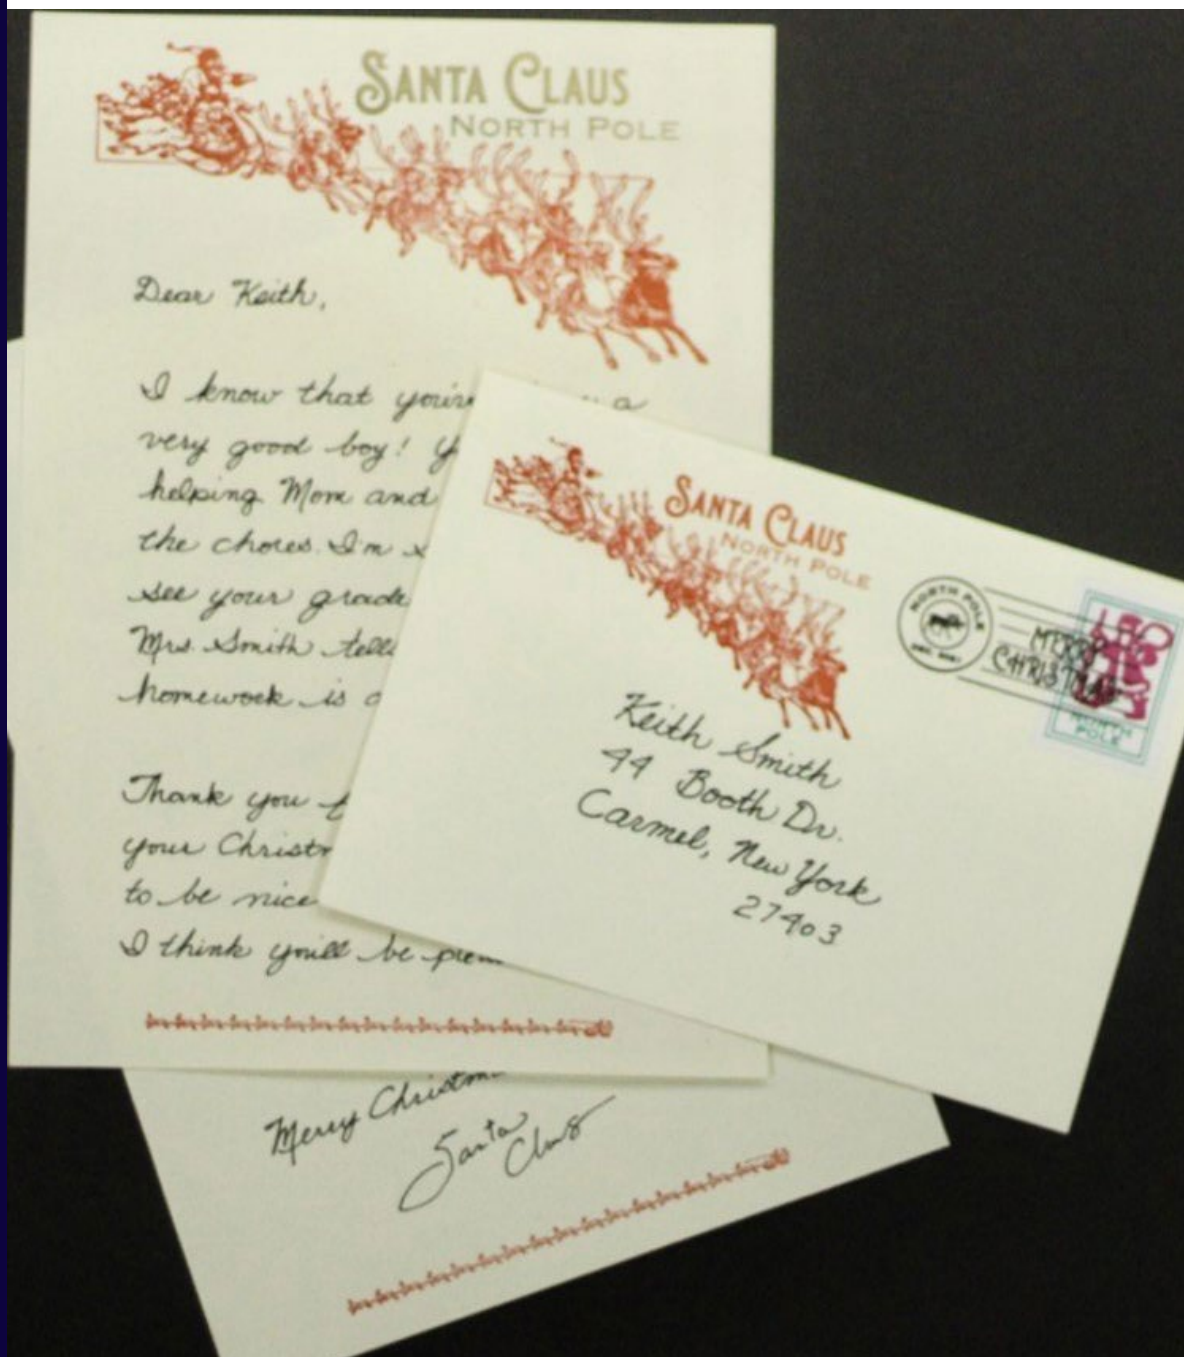 SANTA CLAUS
NORTH POLE
Dear Keith,
I know that you've a
very good boy! Y
helping Mom and
the chores. I'm
see your grade
Mrs. Smith tells
homework is
Thank you f
your Christm
to be nice
I think you'll be
Merry Christm
Santa
Claus
SANTA CLAUS
NORTH POLE
NORTH POLE
MERRY
CHRISTMAS
NORTH
POLE
Keith Smith
44 Booth Dr.
Carmel, New York
27403